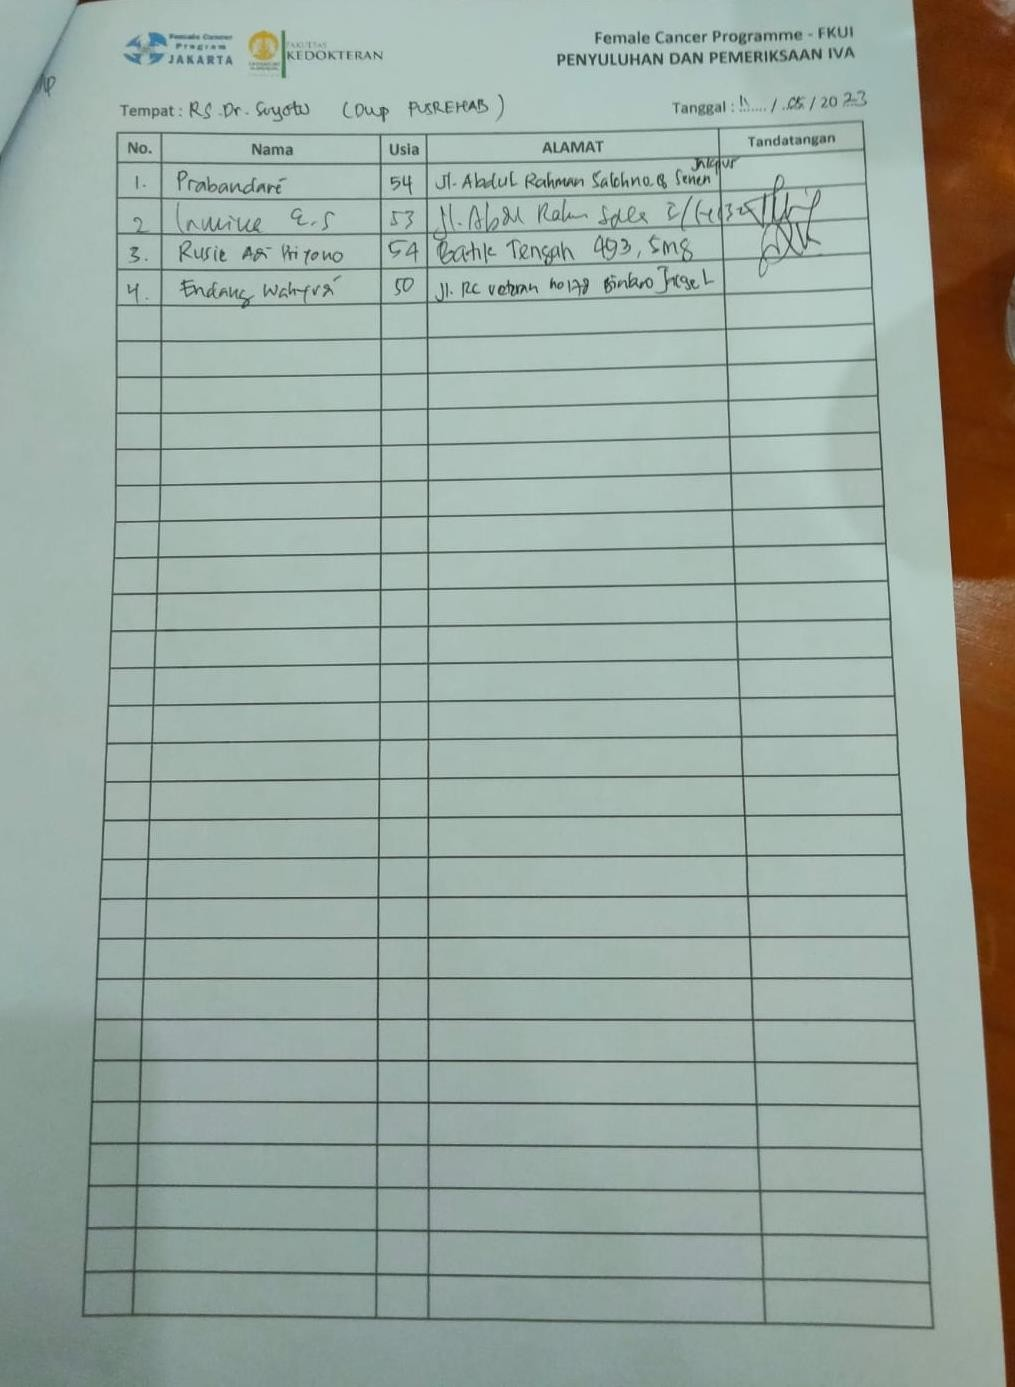 Female Cancer
Program
JAKARTA
FAKULTAS
KEDOKTERAN
Female Cancer Programme - FKUI
PENYULUHAN DAN PEMERIKSAAN IVA
Tempat : RS. Dr. Suyoto (DWP PUSREHAB)
Tanggal : 11 / 05 / 2023
No. Nama Usia ALAMAT Tandatangan
1. Prabandari 54 Jl. Abdul Rahman Saleh no. 8 Senen Jakpur
2 E.S 53 Jl. Abdul Rahman Saleh
3. Rusie Adi Priyono 54 Batik Tengah 493, Smg
4. Endang Wahyuni 50 Jl. RC Veteran no 178 Bintaro Jaksel